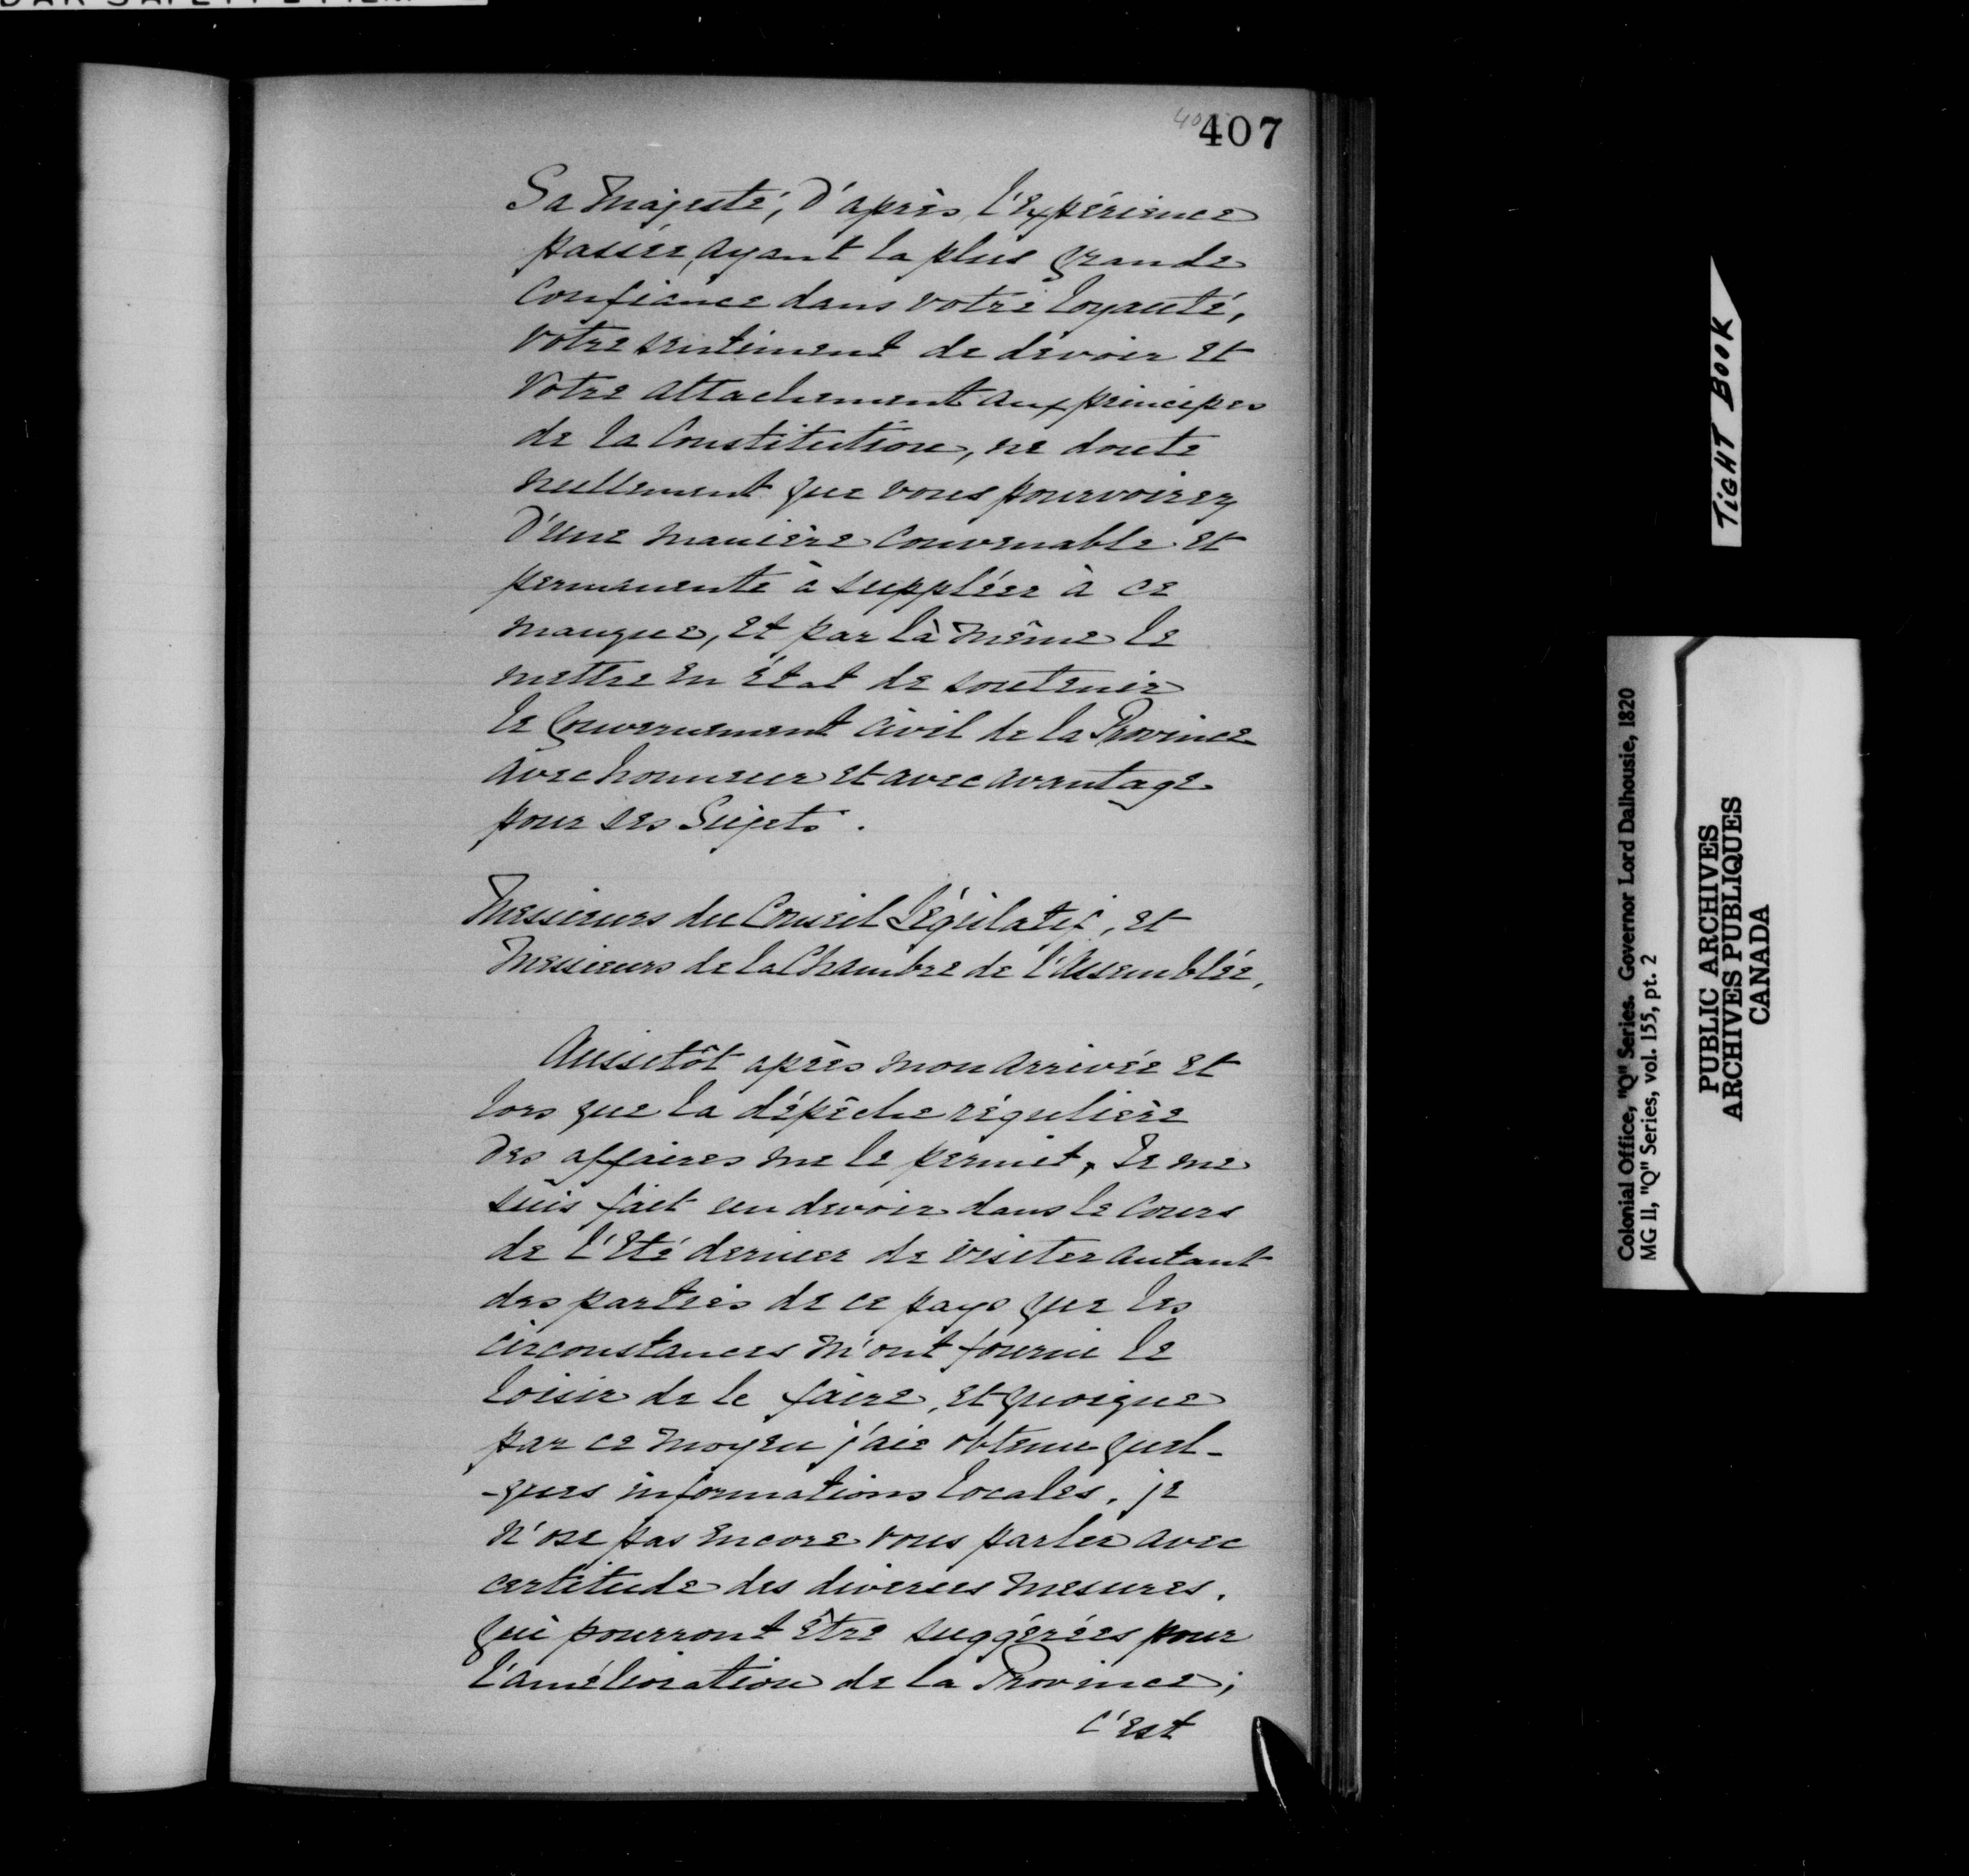 407
Sa Majesté, d'après l'Expérience
passée, ayant la plus grande
Confiance dans votre loyauté,
votre sentiment de devoir et
votre attachement aux principes
de la Constitution, ne doute
nullement que vous pourvoirez
d'une manière convenable et
permanente à suppléer à ce
manque, et par là même le
mettre en état de soutenir
le Gouvernement Civil de la Province
avec honneur et avec avantage
pour ses Sujets.
Messieurs du Conseil Législatif, et
Messieurs de la Chambre de l'Assemblée,
Aussitôt après mon arrivée et
lors que la dépêche régulière
des affaires me le permit, Je me
suis fait un devoir dans le Cours
de l'Eté dernier de visiter autant
des parties de ce pays que les
circonstances m'ont fourni le
loisir de le faire, et quoique
par ce moyen j'aie obtenu quel-
-ques informations locales, je
n'ose pas encore vous parler avec
certitude des diverses mesures.
qui pourront être suggérées pour
l'amélioration de la Province;
C'est
TIGHT BOOK
Colonial Office, "Q" Series. Governor Lord Dalhousie, 1820
MG 11, "Q" Series, vol. 155, pt. 2
PUBLIC ARCHIVES
ARCHIVES PUBLIQUES
CANADA